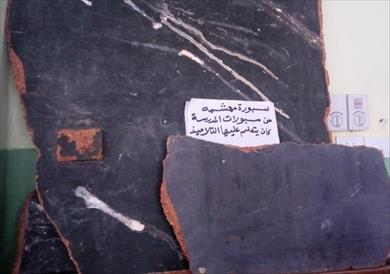 سبورة مهشمه
من سبورات المدرسة
كان يتعلم عليها التلاميذ